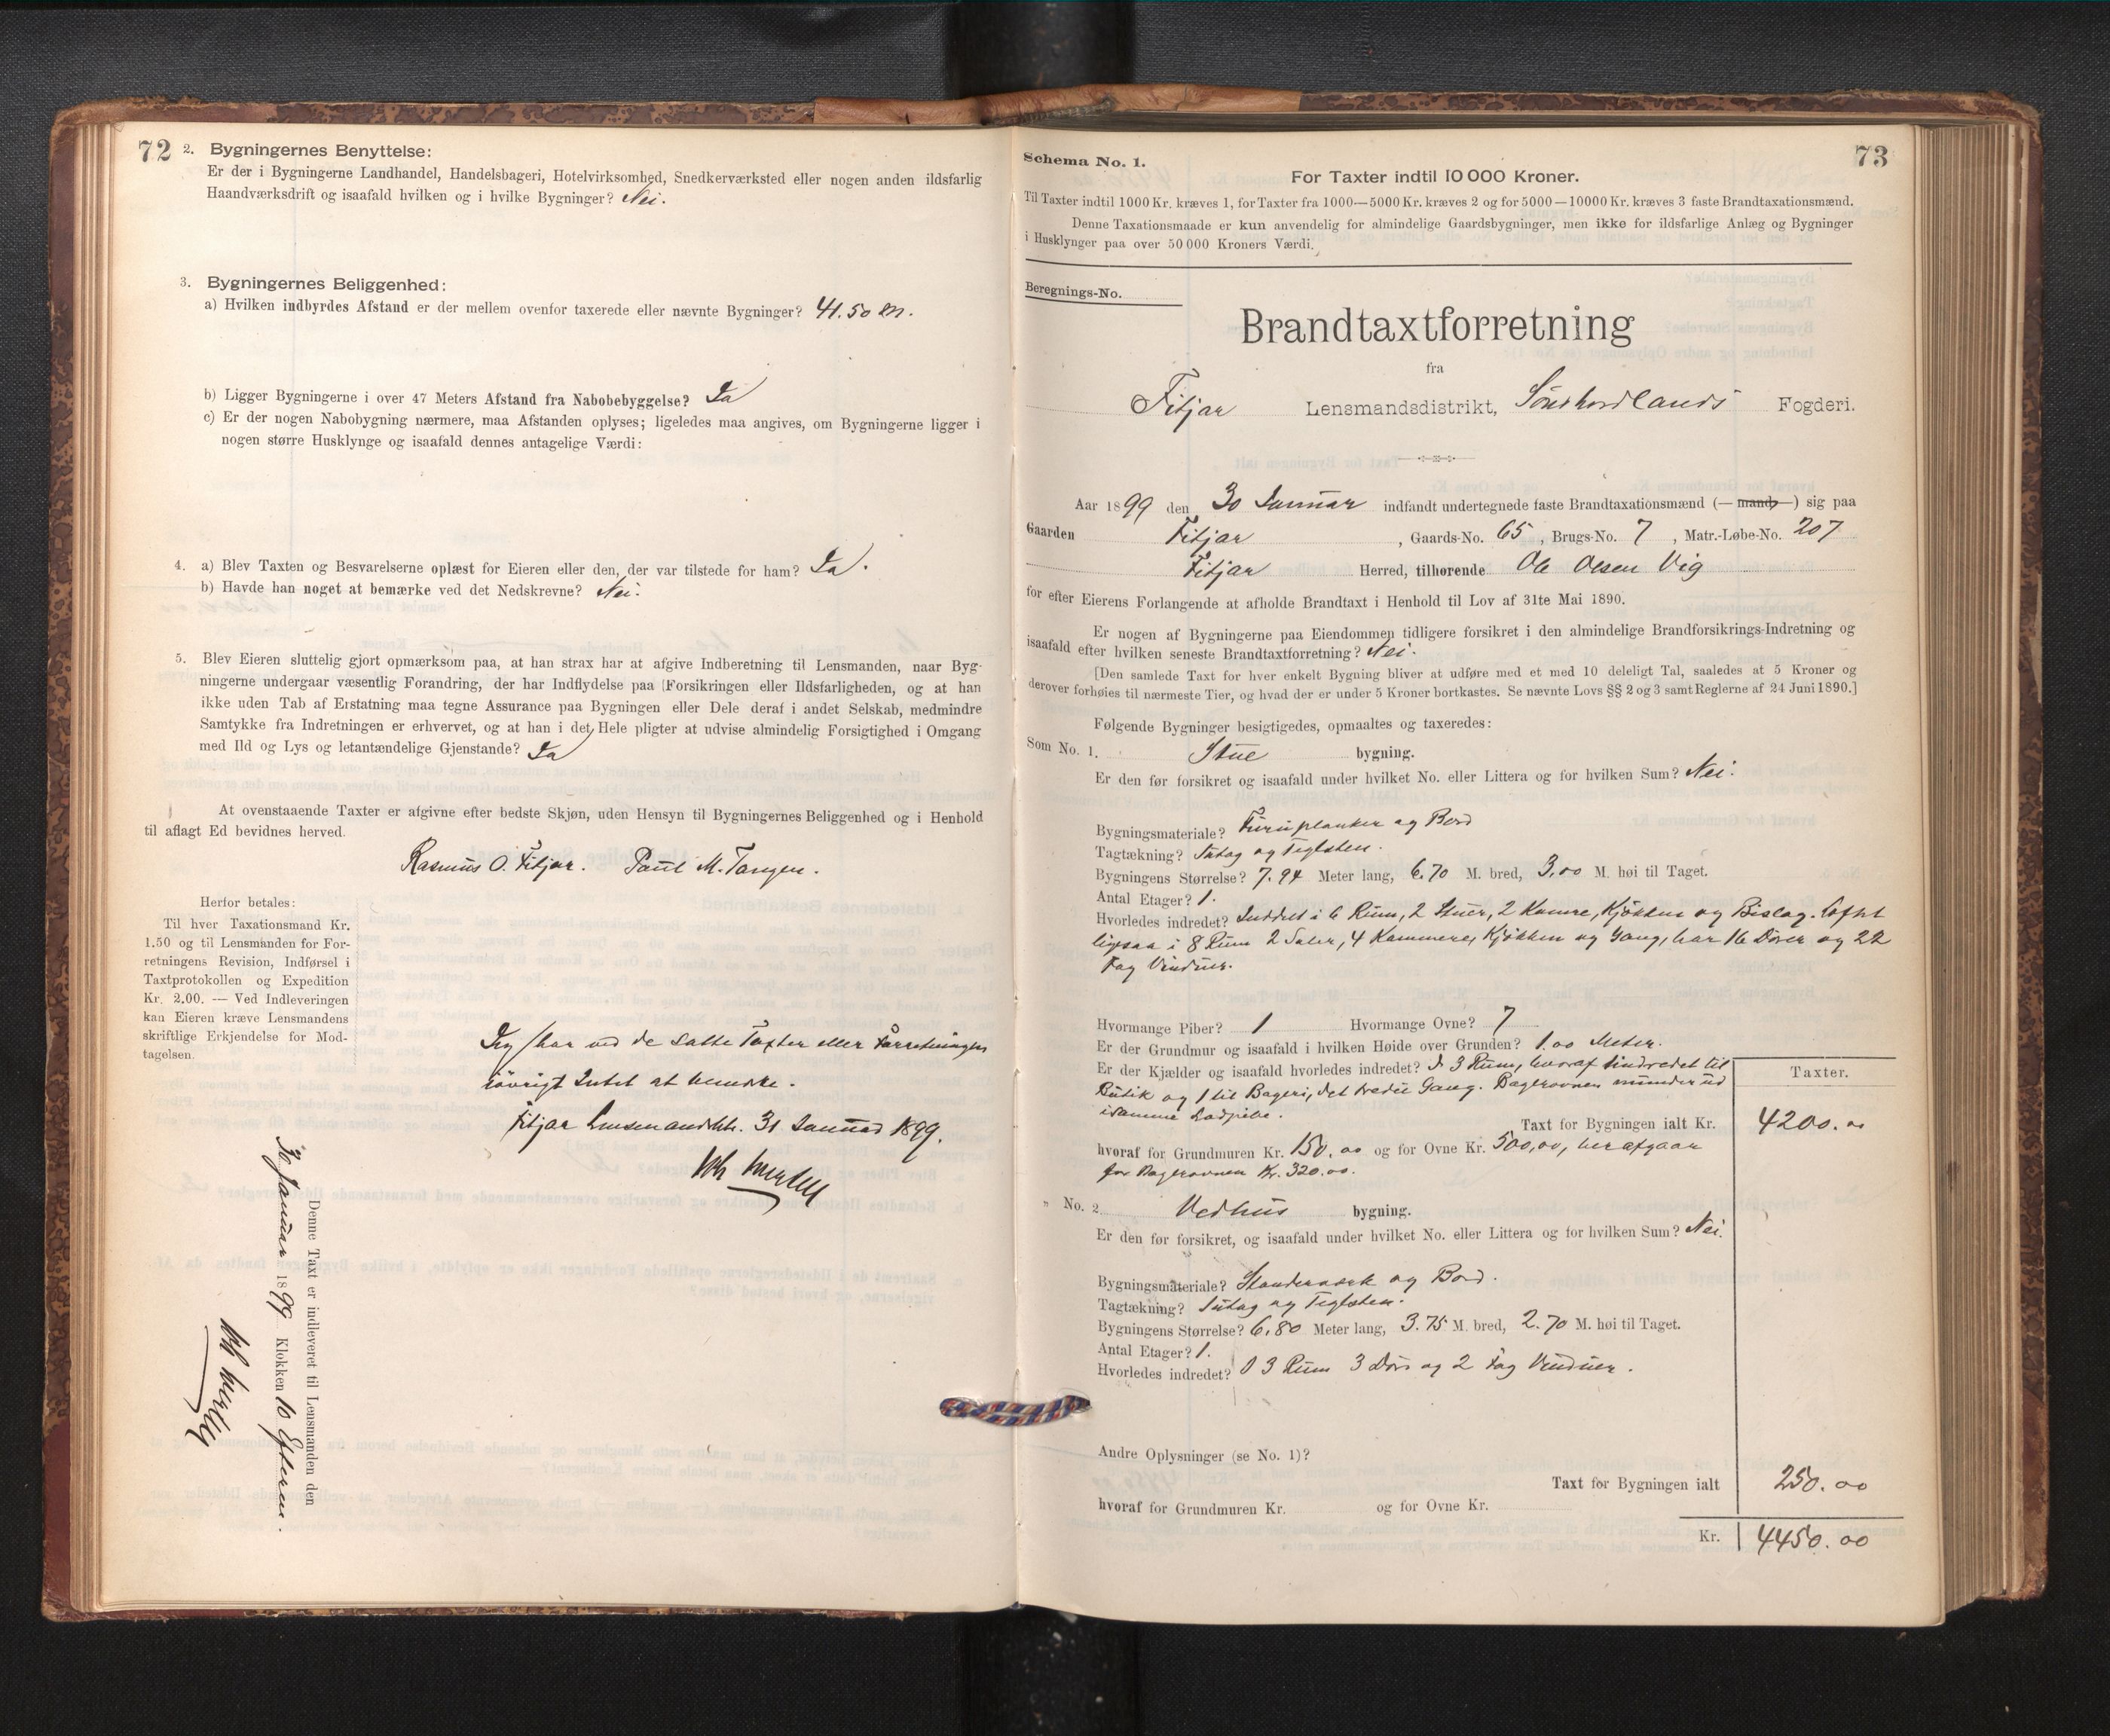 72
2. Bygningernes Benyttelse:
Er der i Bygningerne Landhandel, Handelsbageri, Hotelvirksomhed, Snedkerværksted eller nogen anden ildsfarlig
Haandværksdrift og isaafald hvilken og i hvilke Bygninger? Nei.
3. Bygningernes Beliggenhed:
a) Hvilken indbyrdes Afstand er der mellem ovenfor taxerede eller nævnte Bygninger? 41.50 m.
b) Ligger Bygningerne i over 47 Meters Afstand fra Nabobebyggelse? Ja
c) Er der nogen Nabobygning nærmere, maa Afstanden oplyses; ligeledes maa angives, om Bygningerne ligger i
nogen større Husklynge og isaafald dennes antagelige Værdi:
4. a) Blev Taxten og Besvarelserne oplæst for Eieren eller den, der var tilstede for ham? Ja.
b) Havde han noget at bemærke ved det Nedskrevne? Nei.
5. Blev Eieren sluttelig gjort opmærksom paa, at han strax har at afgive Indberetning til Lensmanden, naar Byg-
ningerne undergaar væsentlig Forandring, der har Indflydelse paa Forsikringen eller Ildsfarligheden, og at han
ikke uden Tab af Erstatning maa tegne Assurance paa Bygningen eller Dele deraf i andet Selskab, medmindre
Samtykke fra Indretningen er erhvervet, og at han i det Hele pligter at udvise almindelig Forsigtighed i Omgang
med Ild og Lys og letantændelige Gjenstande? Ja
At ovenstaaende Taxter er afgivne efter bedste Skjøn, uden Hensyn til Bygningernes Beliggenhed og i Henhold
til aflagt Ed bevidnes herved.
Rasmus O. Fitjar. Paul M. Tangen.
Herfor betales:
Til hver Taxationsmand Kr.
1,50 og til Lensmanden for For-
retningens Revision, Indførsel i
Taxtprotokollen og Expedition
Kr. 2.00. — Ved Indleveringen
kan Eieren kræve Lensmandens
skriftlige Erkjendelse for Mod-
tagelsen.
Jeg har ved de satte Taxter eller Forretningen
iøvrigt Intet at bemerke.
Fitjar Lensmandsktr. 31 Januar 1899.
Denne Taxt er indleveret til Lensmanden den
30 Januar 1899 Klokken 10 Efterm.
73
Schema No. 1.
For Taxter indtil 10 000 Kroner.
Til Taxter indtil 1000 Kr. kræves 1, for Taxter fra 1000—5000 Kr. kræves 2 og for 5000—10000 Kr. kræves 3 faste Brandtaxationsmænd.
Denne Taxationsmaade er kun anvendelig for almindelige Gaardsbygninger, men ikke for ildsfarlige Anlæg og Bygninger
i Husklynger paa over 50 000 Kroners Værdi.
Beregnings-No.
Brandtaxtforretning
fra
Fitjar Lensmandsdistrikt, Søndhordlands Fogderi.
Aar 1899 den 30 Januar indfandt undertegnede faste Brandtaxationsmænd (— mand —) sig paa
Gaarden Fitjar, Gaards-No. 65, Brugs-No. 7, Matr.-Løbe-No. 207
Fitjar Herred, tilhørende Ole Olsen Vig
for efter Eierens Forlangende at afholde Brandtaxt i Henhold til Lov af 31te Mai 1890.
Er nogen af Bygningerne paa Eiendommen tidligere forsikret i den almindelige Brandforsikrings-Indretning og
isaafald efter hvilken seneste Brandtaxtforretning? Nei.
[Den samlede Taxt for hver enkelt Bygning bliver at udføre med et med 10 deleligt Tal, saaledes at 5 Kroner og
derover forhøies til nærmeste Tier, og hvad der er under 5 Kroner bortkastes. Se nævnte Lovs §§ 2 og 3 samt Reglerne af 24 Juni 1890.]
Følgende Bygninger besigtigedes, opmaaltes og taxeredes:
Som No. 1. Stue bygning.
Er den før forsikret og isaafald under hvilket No. eller Littera og for hvilken Sum? Nei.
Bygningsmateriale? Furuplanker og Bord
Tagtækning? Sutag og Teglsten.
Bygningens Størrelse? 7.94 Meter lang, 6.70 M. bred, 3.00 M. høi til Taget.
Antal Etager? 1.
Hvorledes indredet? Inddelt i 6 Rum, 2 Stuer, 2 Kamre, Kjøkken og Bislag. Loftet
ligesaa i 8 Rum 2 Saler, 4 Kammere, Kjøkken og Gang, har 16 Dører og 22
Fag Vinduer.
Hvormange Piber? 1 Hvormange Ovne? 7
Er der Grundmur og isaafald i hvilken Høide over Grunden? 1.00 Meter.
Er der Kjælder og isaafald hvorledes indredet? I 3 Rum, hvoraf 1 indredet til
Butik og 1 til Bageri, det tredie Gang. Bagerovnen munder ud
i samme Ladpibe.
Taxter.
Taxt for Bygningen ialt Kr. 4200.00
hvoraf for Grundmuren Kr. 150.00 og for Ovne Kr. 500,00, heraf gaar
for Bagerovnen Kr. 320.00.
" No. 2 Vedhus bygning.
Er den før forsikret, og isaafald under hvilket No. eller Littera og for hvilken Sum? Nei.
Bygningsmateriale? Standerverk og Bord.
Tagtækning? Sutag og Teglsten.
Bygningens Størrelse? 6.80 Meter lang, 3.75 M. bred, 2.70 M. høi til Taget.
Antal Etager? 1.
Hvorledes indredet? I 3 Rum 3 Dør og 2 Fag Vinduer.
Andre Oplysninger (se No. 1)?
Taxt for Bygningen ialt 250.00
hvoraf for Grundmuren Kr. og for Ovne Kr.
Kr. 4450.00